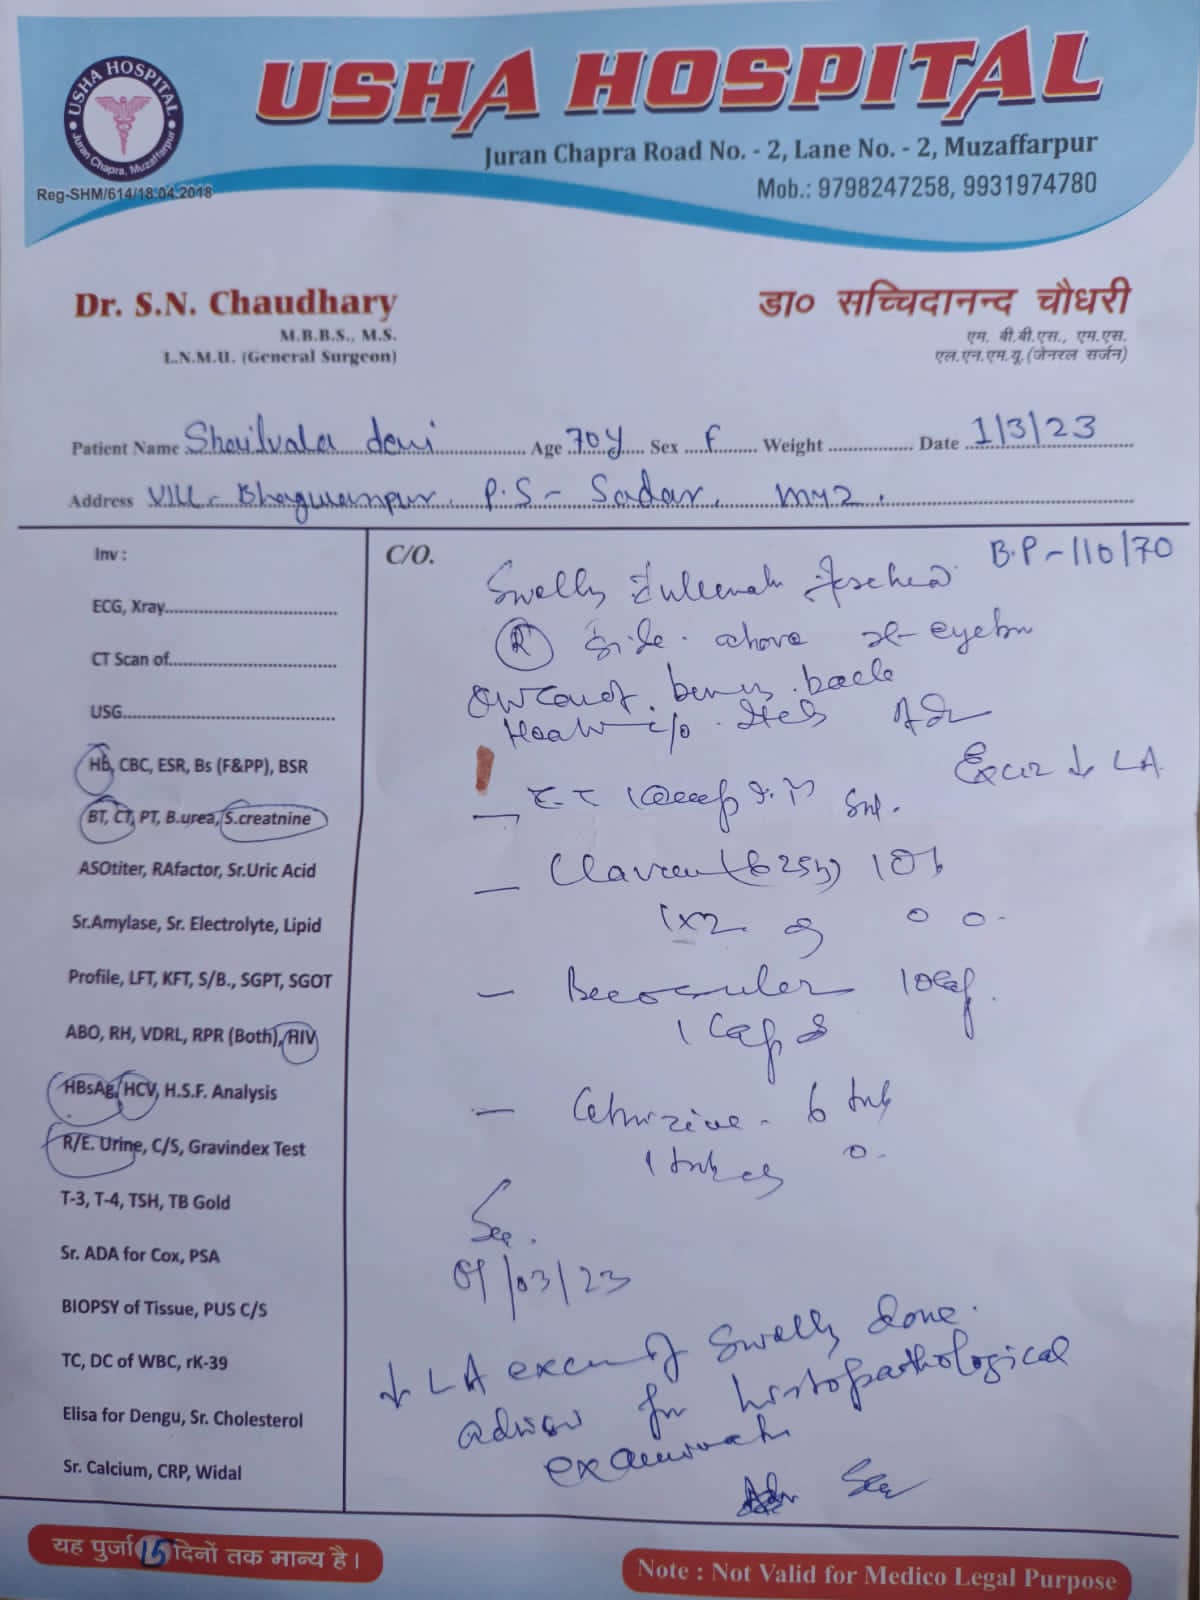 USHA HOSPITAL
Juran Chapra, Muzaffarpur
USHA HOSPITAL
Juran Chapra Road No. - 2, Lane No. - 2, Muzaffarpur
Mob.: 9798247258, 9931974780
Reg-SHM/614/18.04.2018
Dr. S.N. Chaudhary
M.B.B.S., M.S.
L.N.M.U. (General Surgeon)
डा० सच्चिदानन्द चौधरी
एम. बी.बी.एस., एम.एस.
एल.एन.एम.यू.(जेनरल सर्जन)
Patient Name Shailvala devi Age 70y Sex F Weight Date 1/3/23
Address Vill- Bhagwanpur. P.S- Sadar.
Inv :
ECG, Xray
CT Scan of
USG
Hb, CBC, ESR, Bs (F&PP), BSR
BT, CT, PT, B.urea, S.creatnine
ASOtiter, RAfactor, Sr.Uric Acid
Sr.Amylase, Sr. Electrolyte, Lipid
Profile, LFT, KFT, S/B., SGPT, SGOT
ABO, RH, VDRL, RPR (Both), HIV
HBsAg, HCV, H.S.F. Analysis
R/E. Urine, C/S, Gravindex Test
T-3, T-4, TSH, TB Gold
Sr. ADA for Cox, PSA
BIOPSY of Tissue, PUS C/S
TC, DC of WBC, rK-39
Elisa for Dengu, Sr. Cholesterol
Sr. Calcium, CRP, Widal
C/O.
B.P-110/70
Swelling
R side above
back
LA
(625)
1x2
1 Cap
Cetrizine - 6 tab
1 tab
/03/23
LA of swelling done.
advise for histopathological
examination
यह पुर्जा 15 दिनों तक मान्य है।
Note : Not Valid for Medico Legal Purpose